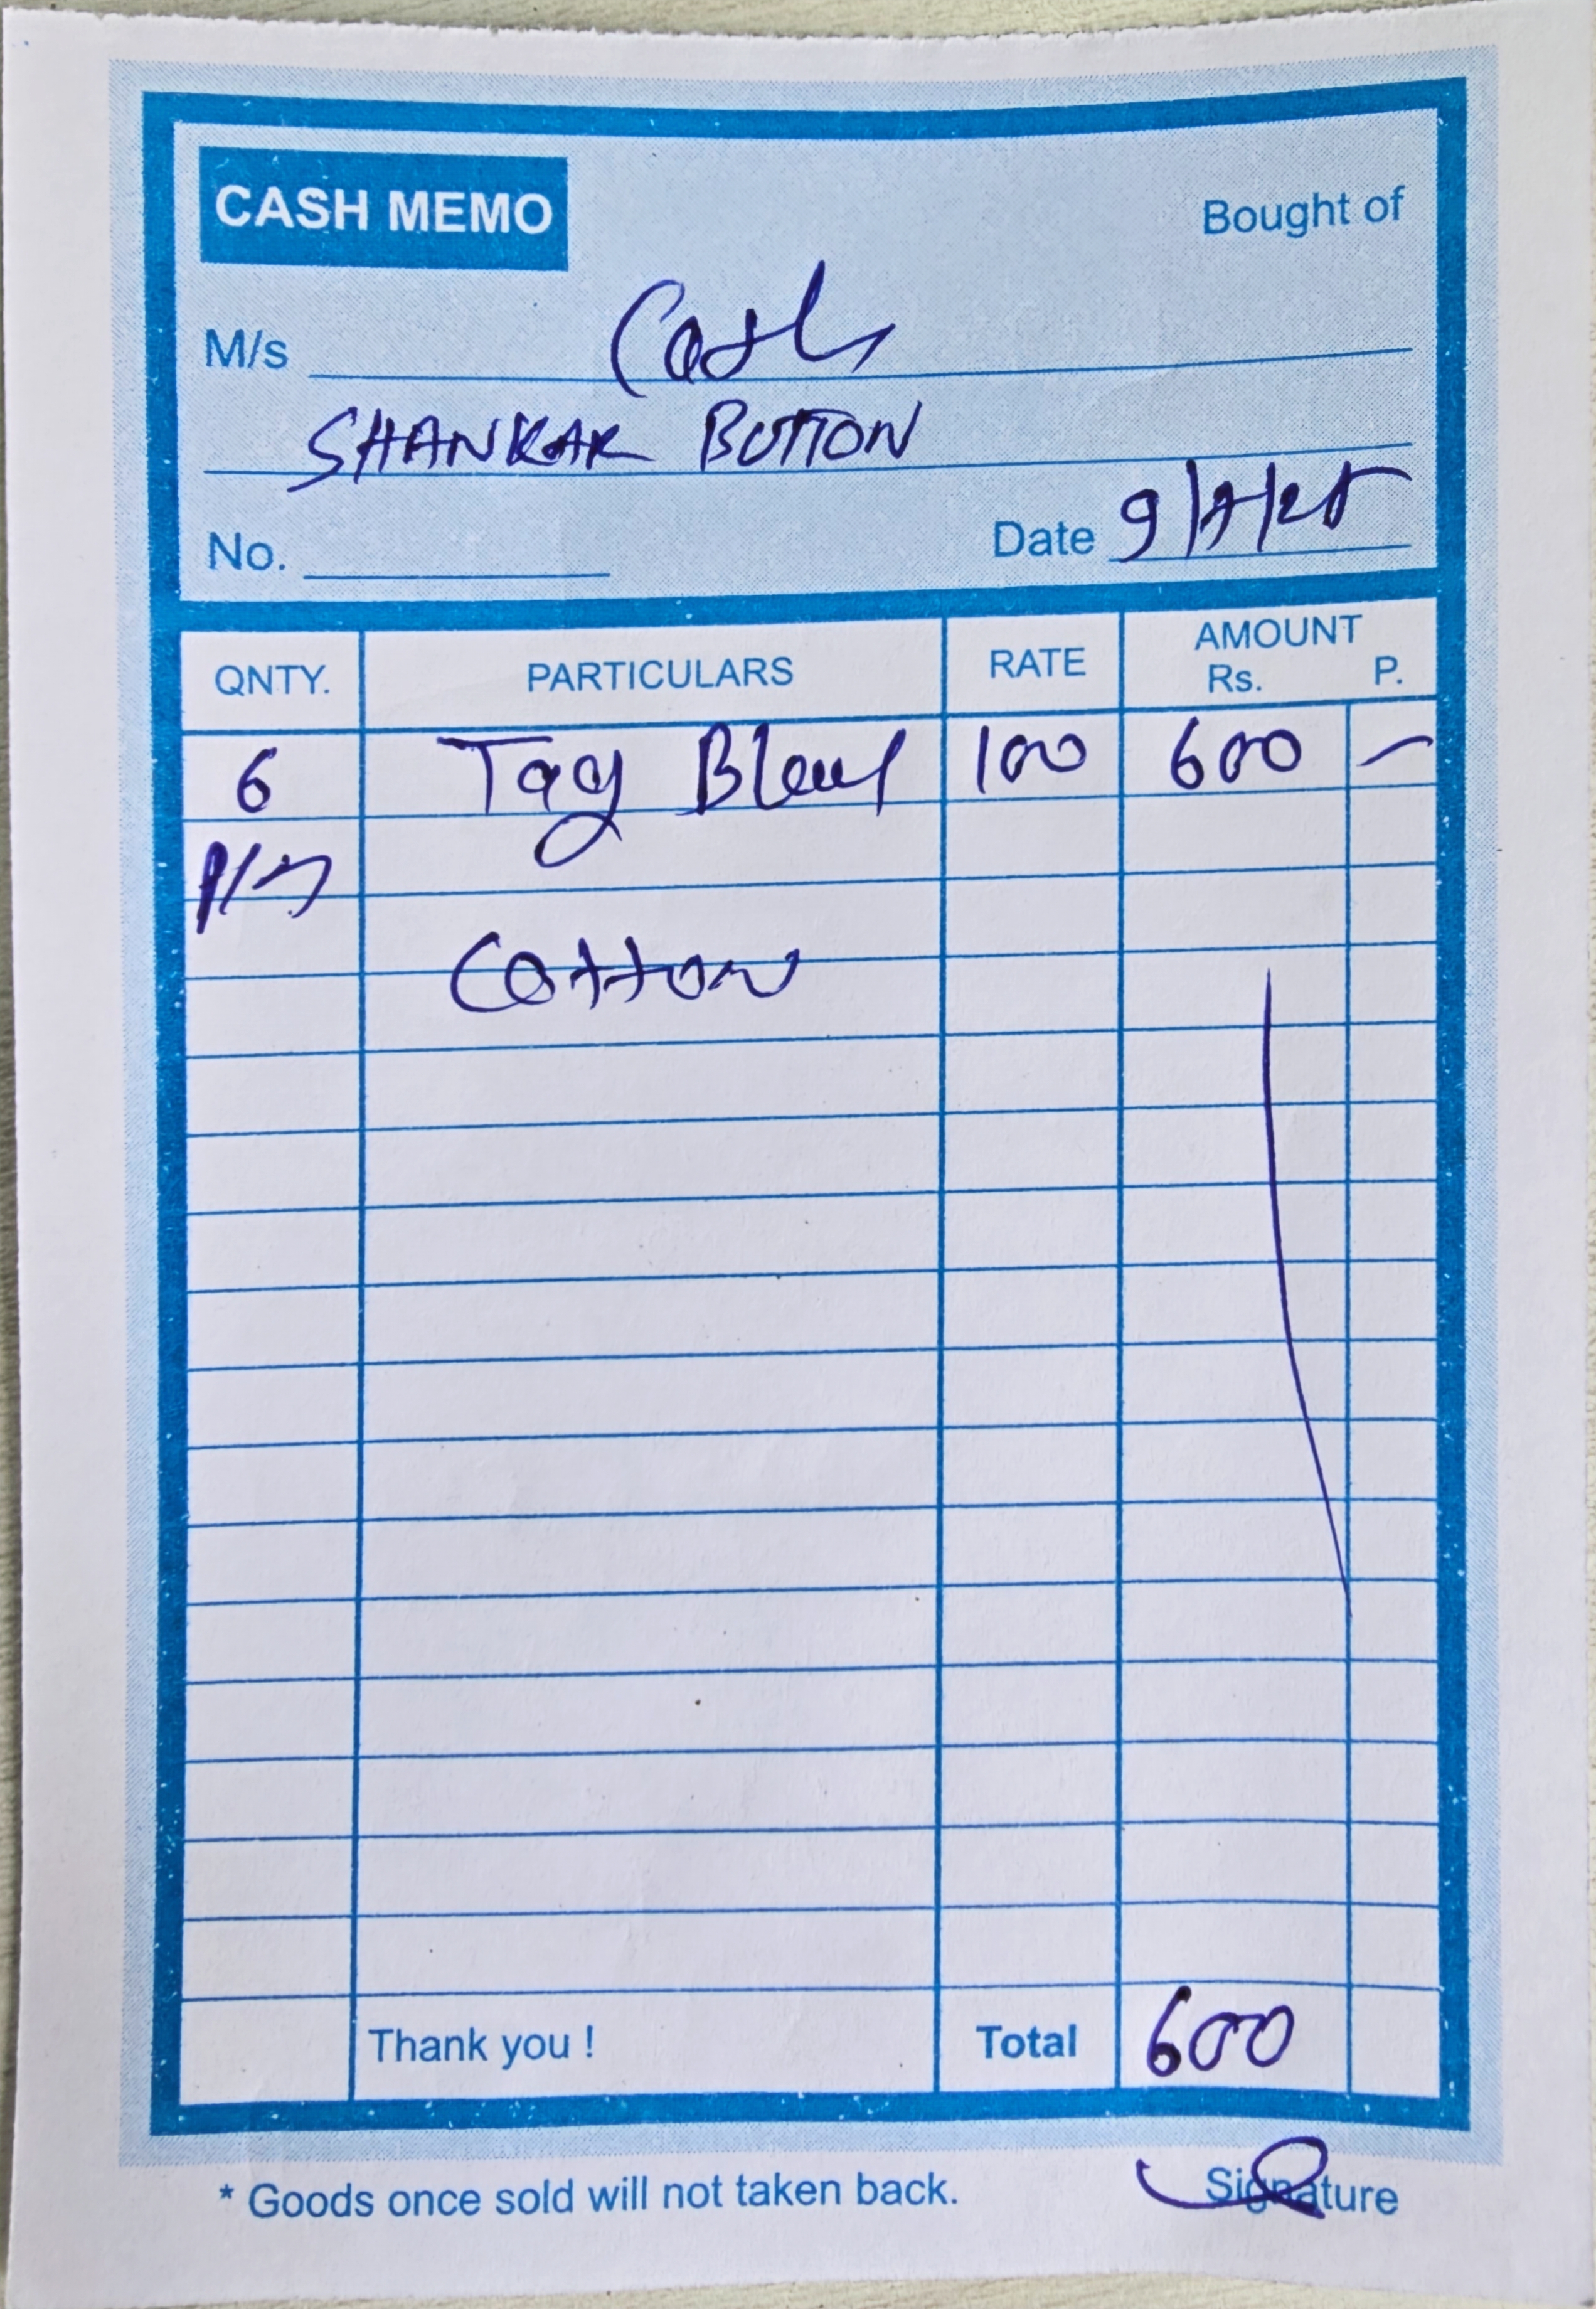 CASH MEMO
Bought of
M/s Cash
SHANKAR BUTTON
No. Date 9/7/25
QNTY. PARTICULARS RATE AMOUNT Rs. P.
6 Tag 100 600 —
Cotton
Thank you ! Total 600
* Goods once sold will not taken back. Signature